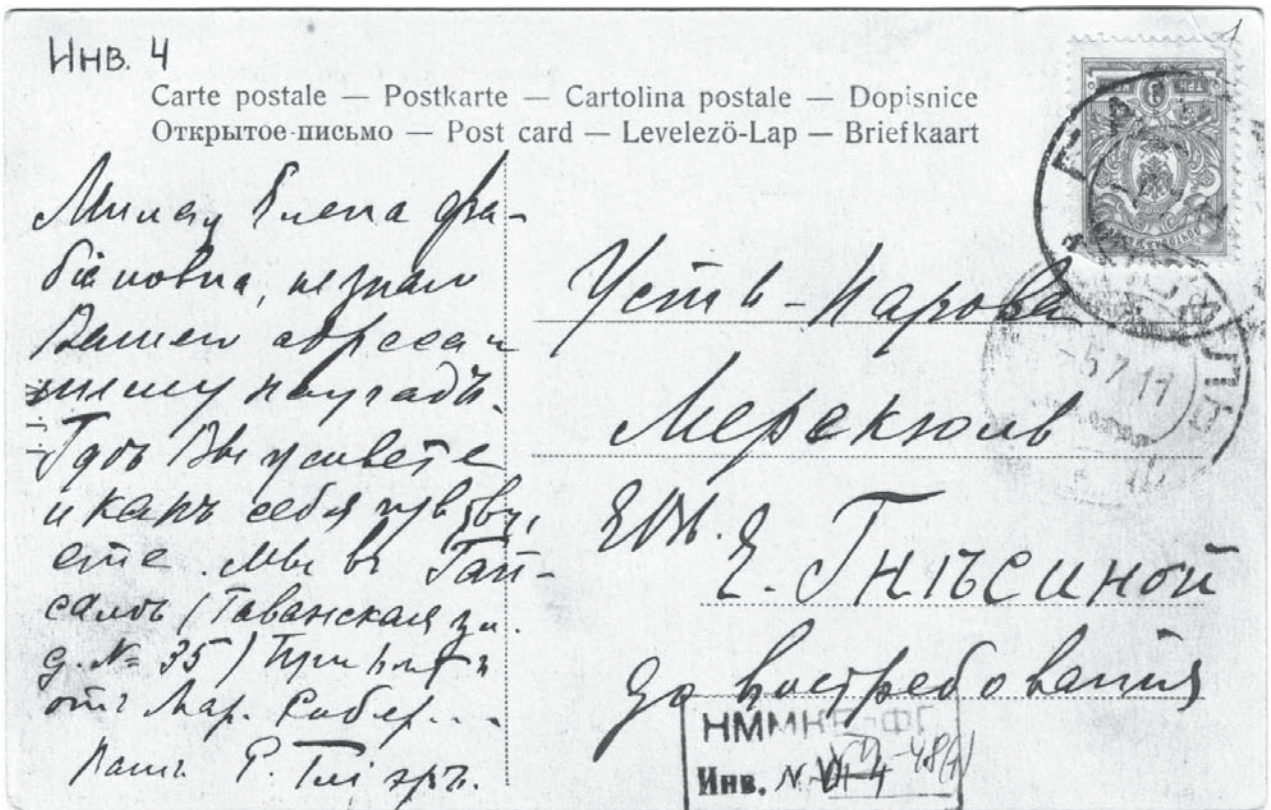 Инв. 4
Carte postale — Postkarte — Cartolina postale — Dopisnice
Открытое письмо — Post card — Levelező-Lap — Briefkaart
Милая Елена Фа-
біановна, не знаю
Вашего адреса и
пишу наугадъ.
Гдѣ Вы живете
и какъ себя чувству,
ете. Мы въ Гап-
салѣ (Гаванская ул.
д. № 35) Приветъ
отъ Мар. Робер...
Вашъ Р. Гліэръ.
Усть-Нарова
Мерекюль
ЕВБ.
Е. Гнѣсиной
до востребования
-5.7.11
НММКЕ-ФГ
Инв. N